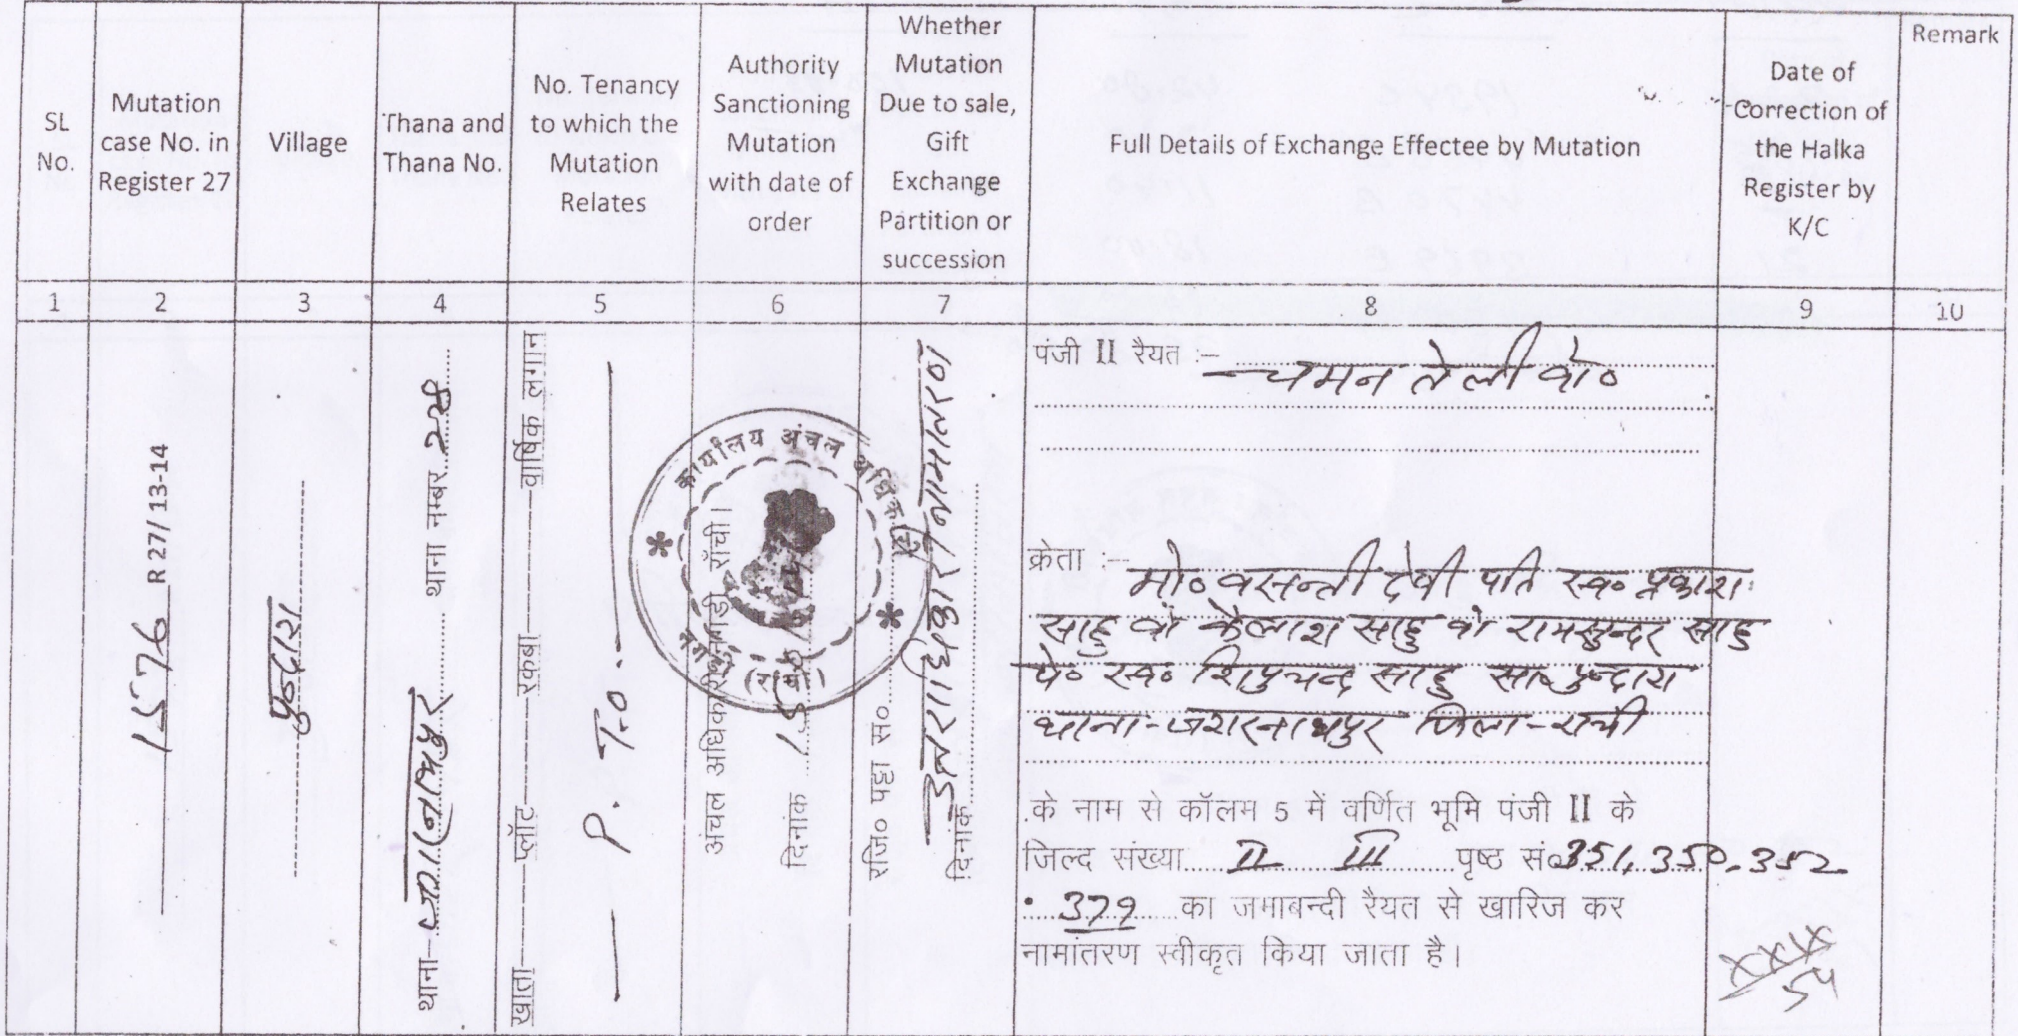 SL No.
Mutation case No. in Register 27
Village
Thana and Thana No.
No. Tenancy to which the Mutation Relates
Authority Sanctioning Mutation with date of order
Whether Mutation Due to sale, Gift Exchange Partition or succession
Full Details of Exchange Effectee by Mutation
Date of Correction of the Halka Register by K/C
Remark
1 2 3 4 5 6 7 8 9 10
1576 R 27/13-14
पुन्दाग
थाना- थाना नम्बर 228
खाता प्लॉट रकबा वार्षिक लगान
P. T.O.
अंचल अधिकारी राँची।
दिनांक
कार्यालय अंचल अधिकारी
(राँची)
रजि० पट्टा सं०
उत्तराधिकार नामान्तरण
दिनांक
पंजी II रैयत :-
चमन तेली वो०
क्रेता :-
मो० वसन्ती देवी पति स्व० प्रकाश
साहु वो कैलाश साहु वो रामसुन्दर साहु
पे० स्व० साहु सा० पुन्दाग
थाना-जगरनाथपुर जिला-राची
के नाम से कॉलम 5 में वर्णित भूमि पंजी II के
जिल्द संख्या II III पृष्ठ सं० 351, 350, 352
379 का जमाबन्दी रैयत से खारिज कर
नामांतरण स्वीकृत किया जाता है।